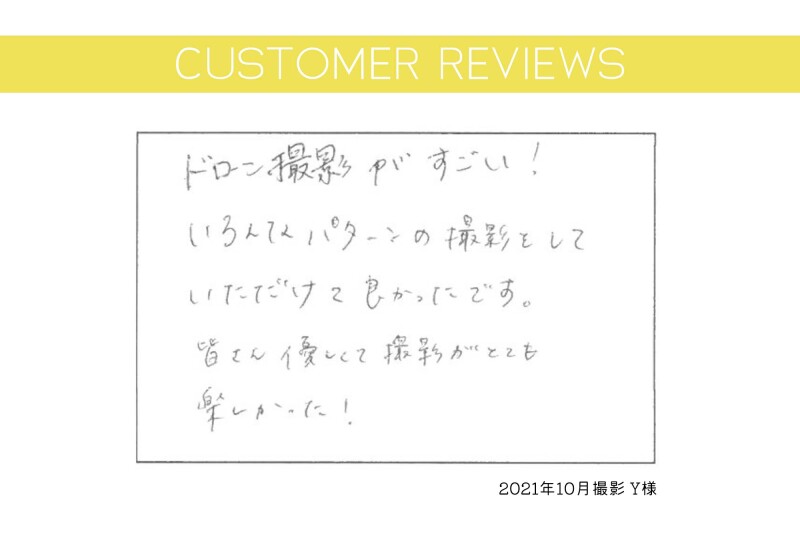 CUSTOMER REVIEWS
ドローン撮影がすごい！
いろんなパターンの撮影をして
いただけて良かったです。
皆さん優しくて撮影がとても
楽しかった！
2021年10月撮影 Y様